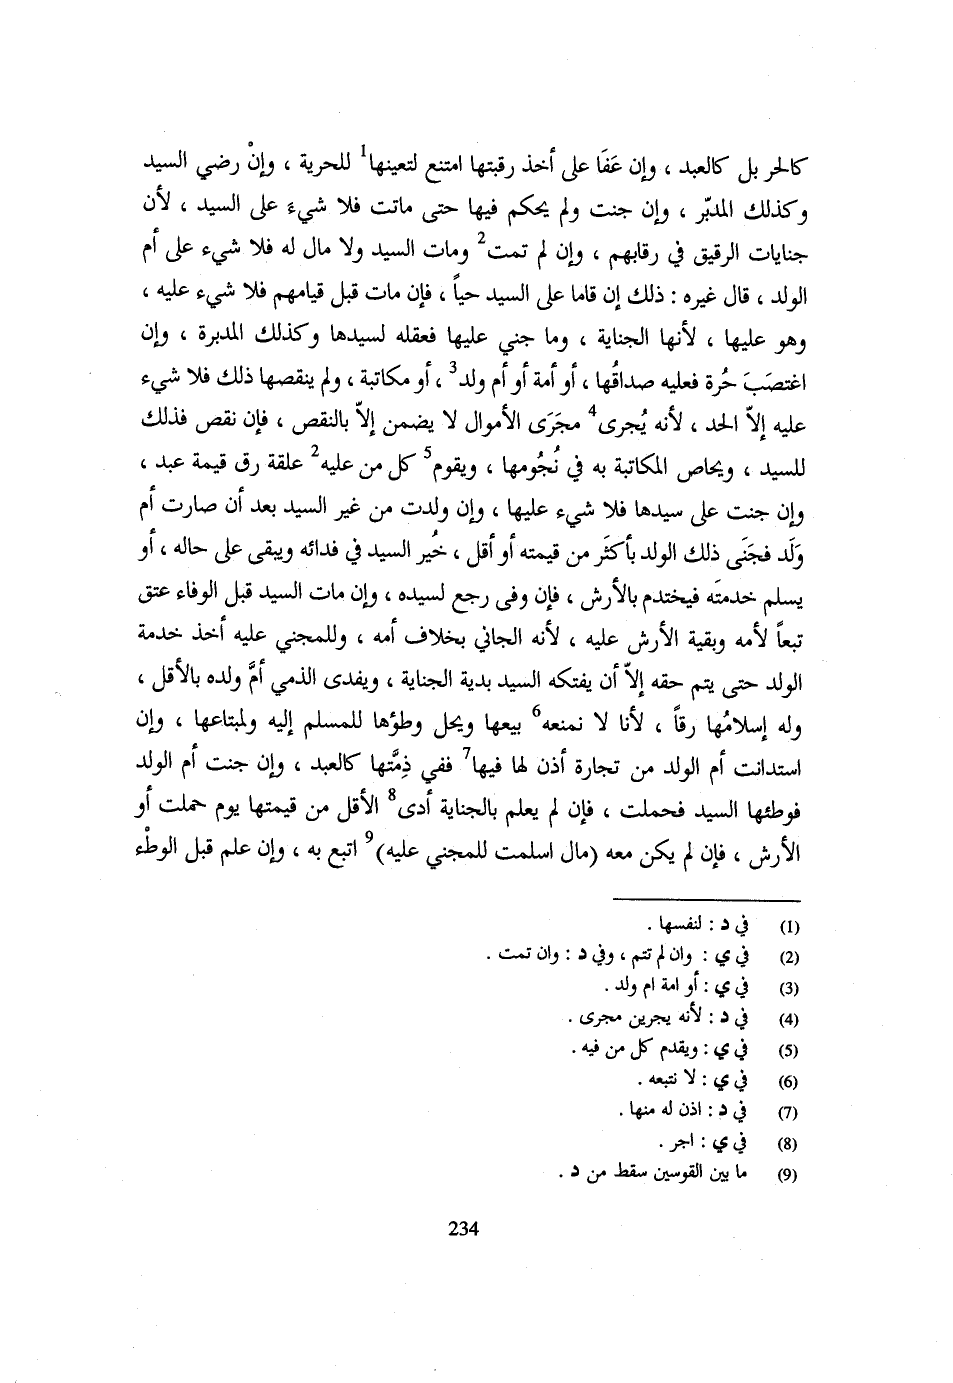 كالحر بل كالعبد ، وإن عَفَا على أخذ رقبتها امتنع لتعينها1 للحرية ، وإنْ رضي السيد
وكذلك المدبّر ، وإن جنت ولم يحكم فيها حتى ماتت فلا شيءَ على السيد ، لأن
جنايات الرقيق في رقابهم ، وإن لم تمت2 ومات السيد ولا مال له فلا شيء على أم
الولد ، قال غيره : ذلك إن قاما على السيد حياً ، فإن مات قبل قيامهم فلا شيء عليه ،
وهو عليها ، لأنها الجناية ، وما جني عليها فعقله لسيدها وكذلك المدبرة ، وإن
اغتصَبَ حُرة فعليه صداقُها ، أو أمة أو أم ولد3 ، أو مكاتبة ، ولم ينقصها ذلك فلا شيء
عليه إلاّ الحد ، لأنه يُجرى4 مجَرَى الأموال لا يضمن إلاّ بالنقص ، فإن نقص فذلك
للسيد ، ويحاص المكاتبة به في نُجُومها ، ويقوم5 كل من عليه2 علقة رق قيمة عبد ،
وإن جنت على سيدها فلا شيء عليها ، وإن ولدت من غير السيد بعد أن صارت أم
وَلَد فجَنَى ذلك الولد بأكثَر من قيمته أو أقل ، خُير السيد في فدائه ويبقى على حاله ، أو
يسلم خدمتَه فيختدم بالأرش ، فإن وفى رجع لسيده ، وإن مات السيد قبل الوفاء عتق
تبعاً لأمه وبقية الأرش عليه ، لأنه الجاني بخلاف أمه ، وللمجني عليه أخذ خدمة
الولد حتى يتم حقه إلاّ أن يفتكه السيد بدية الجناية ، ويفدى الذمي أمَّ ولده بالأقل ،
وله إسلامُها رقاً ، لأنا لا نمنعه6 بيعها ويحل وطؤها للمسلم إليه ولمبتاعها ، وإن
استدانت أم الولد من تجارة أذن لها فيها7 ففي ذِمَّتها كالعبد ، وإن جنت أم الولد
فوطئها السيد فحملت ، فإن لم يعلم بالجناية أدى8 الأقل من قيمتها يوم حملت أو
الأرش ، فإن لم يكن معه (مال اسلمت للمجني عليه)9 اتبع به ، وإن علم قبل الوطْء
(1) في د : لنفسها .
(2) في ي : وان لم تتم ، وفي د : وان تمت .
(3) في ي : أو امة ام ولد .
(4) في د : لأنه يجرين مجرى .
(5) في ي : ويقدم كل من فيه .
(6) في ي : لا نتبعه .
(7) في د : اذن له منها .
(8) في ي : اجر .
(9) ما بين القوسين سقط من د .
234